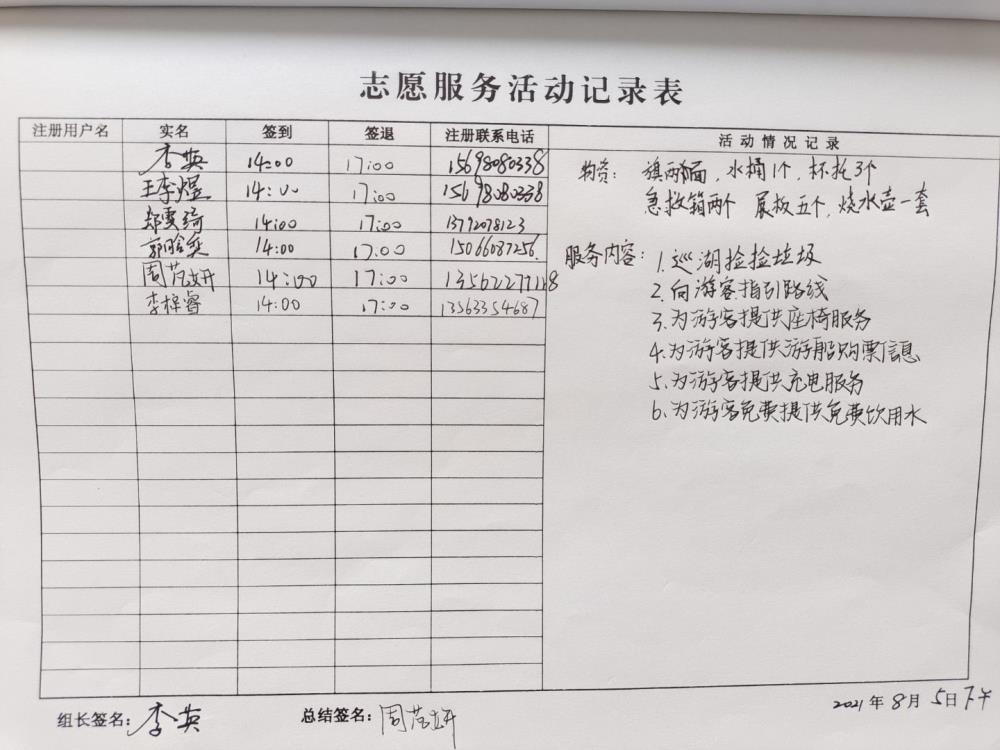 志愿服务活动记录表
注册用户名 实名 签到 签退 注册联系电话 活动情况记录
李英 14:00 17:00 15698080338
王李煜 14:00 17:00 15698080338
郑雯绮 14:00 17:00 13792078123
郭晗奕 14:00 17:00 15066087256.
周范妍 14:00 17:00
李梓睿 14:00 17:00 13563354687
物资: 旗两面, 水桶1个, 杯托3个
急救箱两个 展板五个, 烧水壶一套
服务内容: 1. 巡湖捡捡垃圾
2. 向游客指引路线
3. 为游客提供座椅服务
4. 为游客提供游船购票信息
5. 为游客提供充电服务
6. 为游客免费提供免费饮用水
组长签名: 李英 总结签名: 周范妍 2021年8月5日下午